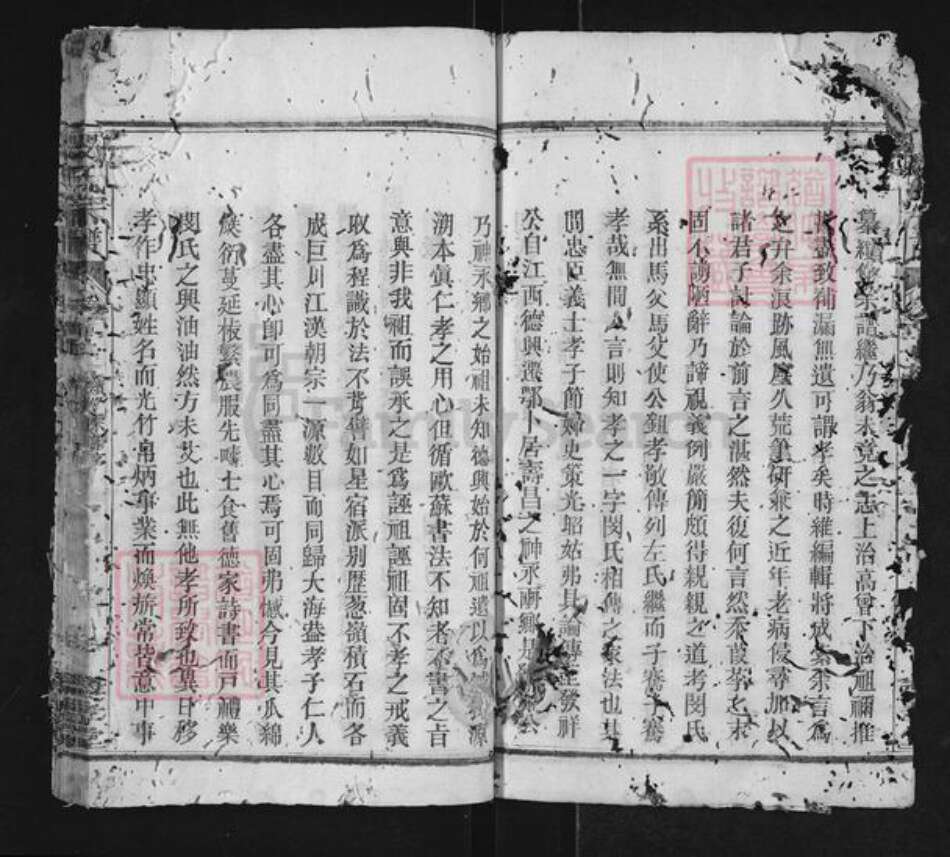 纂續修宗譜繼乃翁未竟之志上治高曾下治祖禰推
盡致補漏無遺可謂孝矣時維編輯將成索余言為
之弁余浪跡風塵久荒筆研兼之近年老病侵尋加以
諸君子討論於前言之湛然夫復何言然不葭莩之末
固不謭陋辭乃諦視義例嚴簡頗得親親之道考閔氏
系出馬父馬父使公鉏孝敬傳列左氏繼而子騫子騫
孝哉無間人言則知孝之一字閔氏相傳之家法也其
間忠臣義士孝子節婦史策光昭姑弗具論傳至發祥
公自江西德興遷鄂卜居壽昌之神永兩鄉是發祥公
乃神永鄉之始祖未知德興始於何祖遺以為憾夫源
溯本真仁孝之用心但循歐蘇書法不知者不書之旨
意與非我祖而誤承之是為誣祖誣祖固不孝之戒義
取為程識於法不背譬如星宿派别歷葱嶺積石而各
成巨川江漢朝宗一源數目而同歸大海蓋孝子仁人
各盡其心即可為同盡其心焉可固弗憾今見其瓜綿
瓞衍蔓延椒繁農服先疇士食舊德家詩書而戶禮樂
閔氏之興油油然方未艾也此無他孝所致也異日移
孝作忠顯姓名而光竹帛炳事業而煥旂常皆意中事